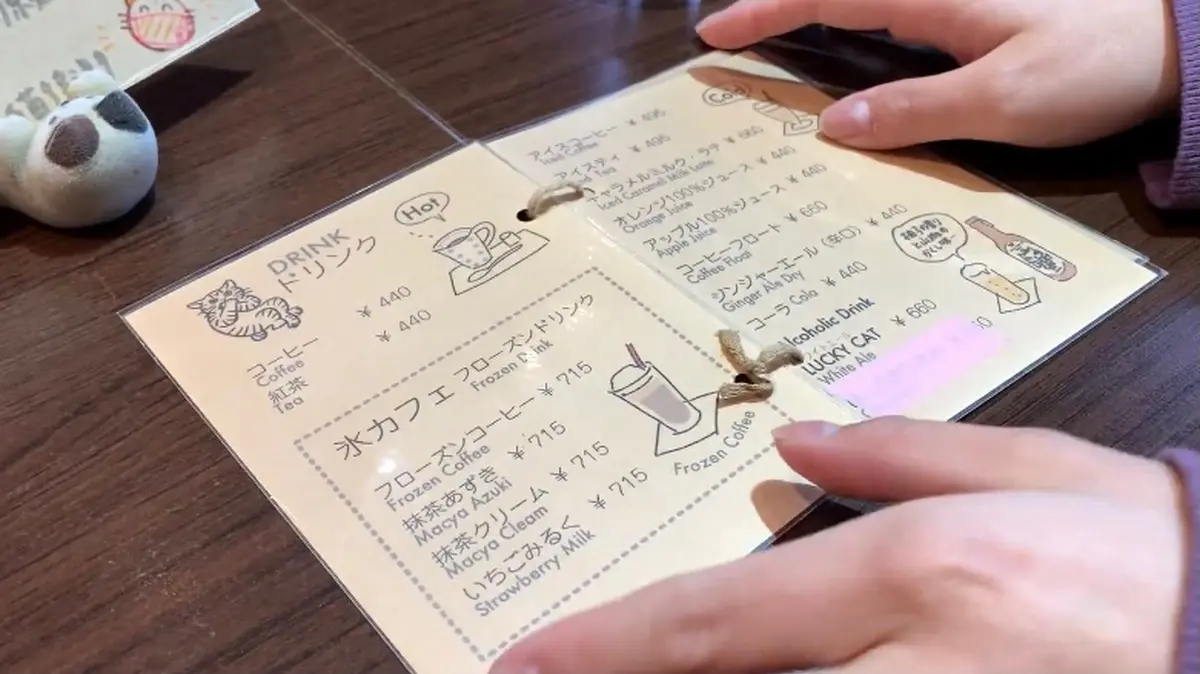 DRINK
ドリンク
Hot
コーヒー ¥ 440
Coffee
紅茶 ¥ 440
Tea
氷カフェ フローズンドリンク
Frozen Drink
フローズンコーヒー ¥ 715
Frozen Coffee
抹茶あずき ¥ 715
Macya Azuki
抹茶クリーム ¥ 715
Macya Cleam
いちごみるく ¥ 715
Strawberry Milk
Frozen Coffee
Cold
アイスコーヒー ¥ 495
Iced Coffee
アイスティ ¥ 495
Tea
キャラメルミルク・ラテ ¥ 660
Iced Caramel Milk Latte
オレンジ100%ジュース ¥ 440
Orange Juice
アップル100%ジュース ¥ 440
Apple Juice
コーヒーフロート ¥ 660
Coffee Float
ジンジャーエール(辛口) ¥ 440
Ginger Ale Dry
コーラ Cola ¥ 440
lcoholic Drink
LUCKY CAT ¥ 660
White Ale